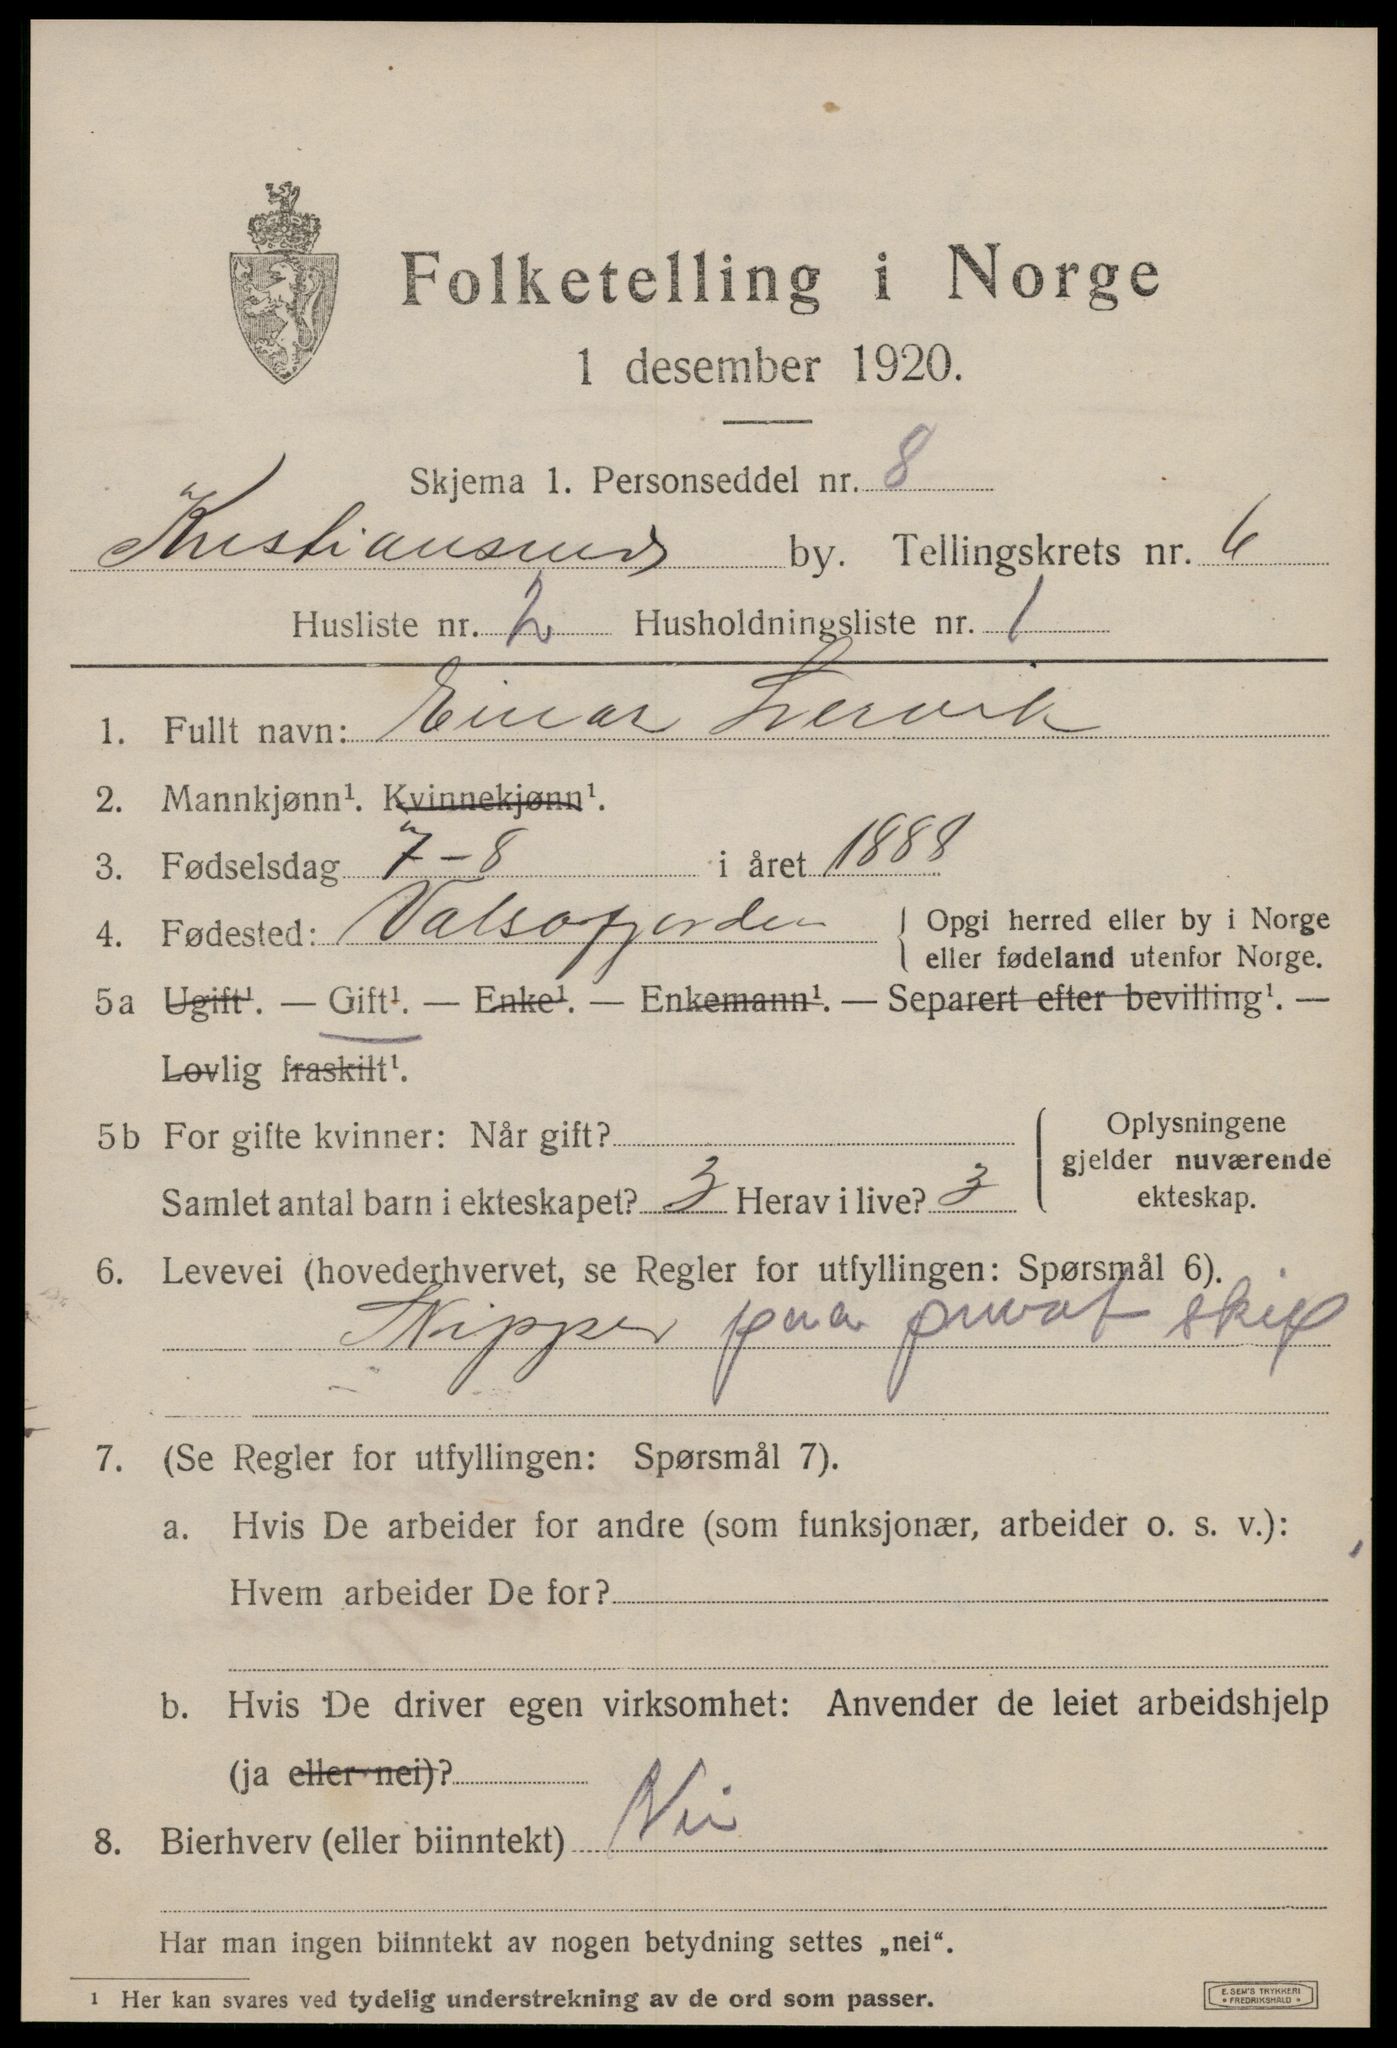 Folketelling i Norge
1 desember 1920.
Skjema 1. Personseddel nr. 8
Kristiansund by. Tellingskrets nr. 6
Husliste nr. 2 Husholdningsliste nr. 1
1. Fullt navn: Einar Lervik
2. Mannkjønn¹. Kvinnekjønn¹.
3. Fødselsdag 7-8 i året 1888
4. Fødested: Valsøfjorden
Opgi herred eller by i Norge
eller fødeland utenfor Norge.
5a Ugift¹. — Gift¹. — Enke¹. — Enkemann¹. — Separert efter bevilling¹. —
Lovlig fraskilt¹.
5b For gifte kvinner: Når gift?
Samlet antal barn i ekteskapet? 3 Herav i live? 3
Oplysningene
gjelder nuværende
ekteskap.
6. Levevei (hovederhvervet, se Regler for utfyllingen: Spørsmål 6).
Skipper paa privat skip
7. (Se Regler for utfyllingen: Spørsmål 7).
a. Hvis De arbeider for andre (som funksjonær, arbeider o. s. v.):
Hvem arbeider De for?
b. Hvis De driver egen virksomhet: Anvender de leiet arbeidshjelp
(ja eller nei)?
8. Bierhverv (eller biinntekt) Nei
Har man ingen biinntekt av nogen betydning settes „nei“.
¹ Her kan svares ved tydelig understrekning av de ord som passer.
E. SEM'S TRYKKERI
• FREDRIKSHALD •